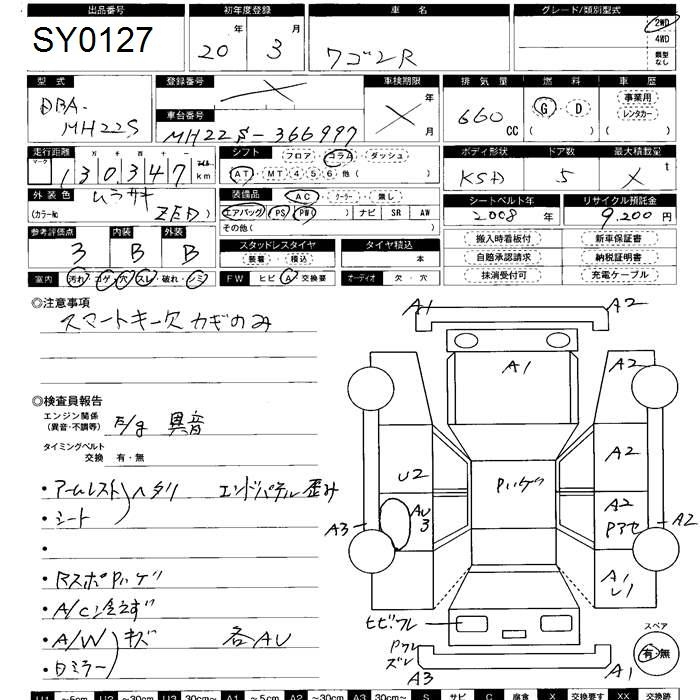 出品番号 初年度登録 車名 グレード/類別型式
SY0127 20年 3月 ワゴンR 2WD
4WD
類型なし
型式 登録番号 車検期限 排気量 燃料 車歴
DBA-MH22S X X 年 月 660cc G・D ( ) 事業用 レンタカー ( )
車台番号
MH22S-366997
走行距離 シフト ボディ形状 ドア数 最大積載量
マーク 十万千百十 マイル
130347 km フロア コラム ダッシュ
AT・MT 4 5 6 他( ) 5 X t
外装色 装備品 シートベルト年 リサイクル預託金
ムラサキ AC・クーラー・無し
(カラーNo ZED) エアバッグ PS PW ( ) ナビ SR AW 2008年 9,200円
その他( )
参考評価点 内装 外装 スタッドレスタイヤ タイヤ積込 搬入時看板付 新車保証書
3 B B 装着・積込 本 自賠承認請求 納税証明書
室内 汚れ・コゲ・穴・スレ・破れ・シミ FW ヒビ A 交換要 オーディオ 欠・穴 抹消受付可 充電ケーブル
◎注意事項
スマートキー欠 カギのみ
◎検査員報告
エンジン関係
(異音・不調等) E/g 異音
タイミングベルト
交換 有・無
・アームレスト ヘタリ エンドパネル歪み
・シート
・
・Rスポ Pハゲ
・A/C冷えず
・A/W キズ 各AU
・日ミラー
A1 A2
A1 A2
U2 Pハゲ A2
AU3 A2 Pアセ
A3 A2
A1 U1
ヒビ・ワレ
Pワレ ズレ
A3 A1
スペア
有・無
U1 ～5cm U2 ～30cm U3 30cm～ A1 ～5cm A2 ～30cm A3 30cm～ S サビ C 腐食 X 交換要す XX 交換跡